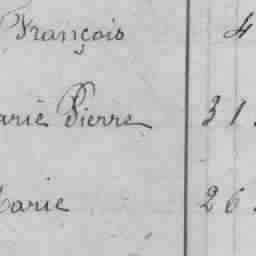 François 4
arie Pierre 31.
Marie 26.